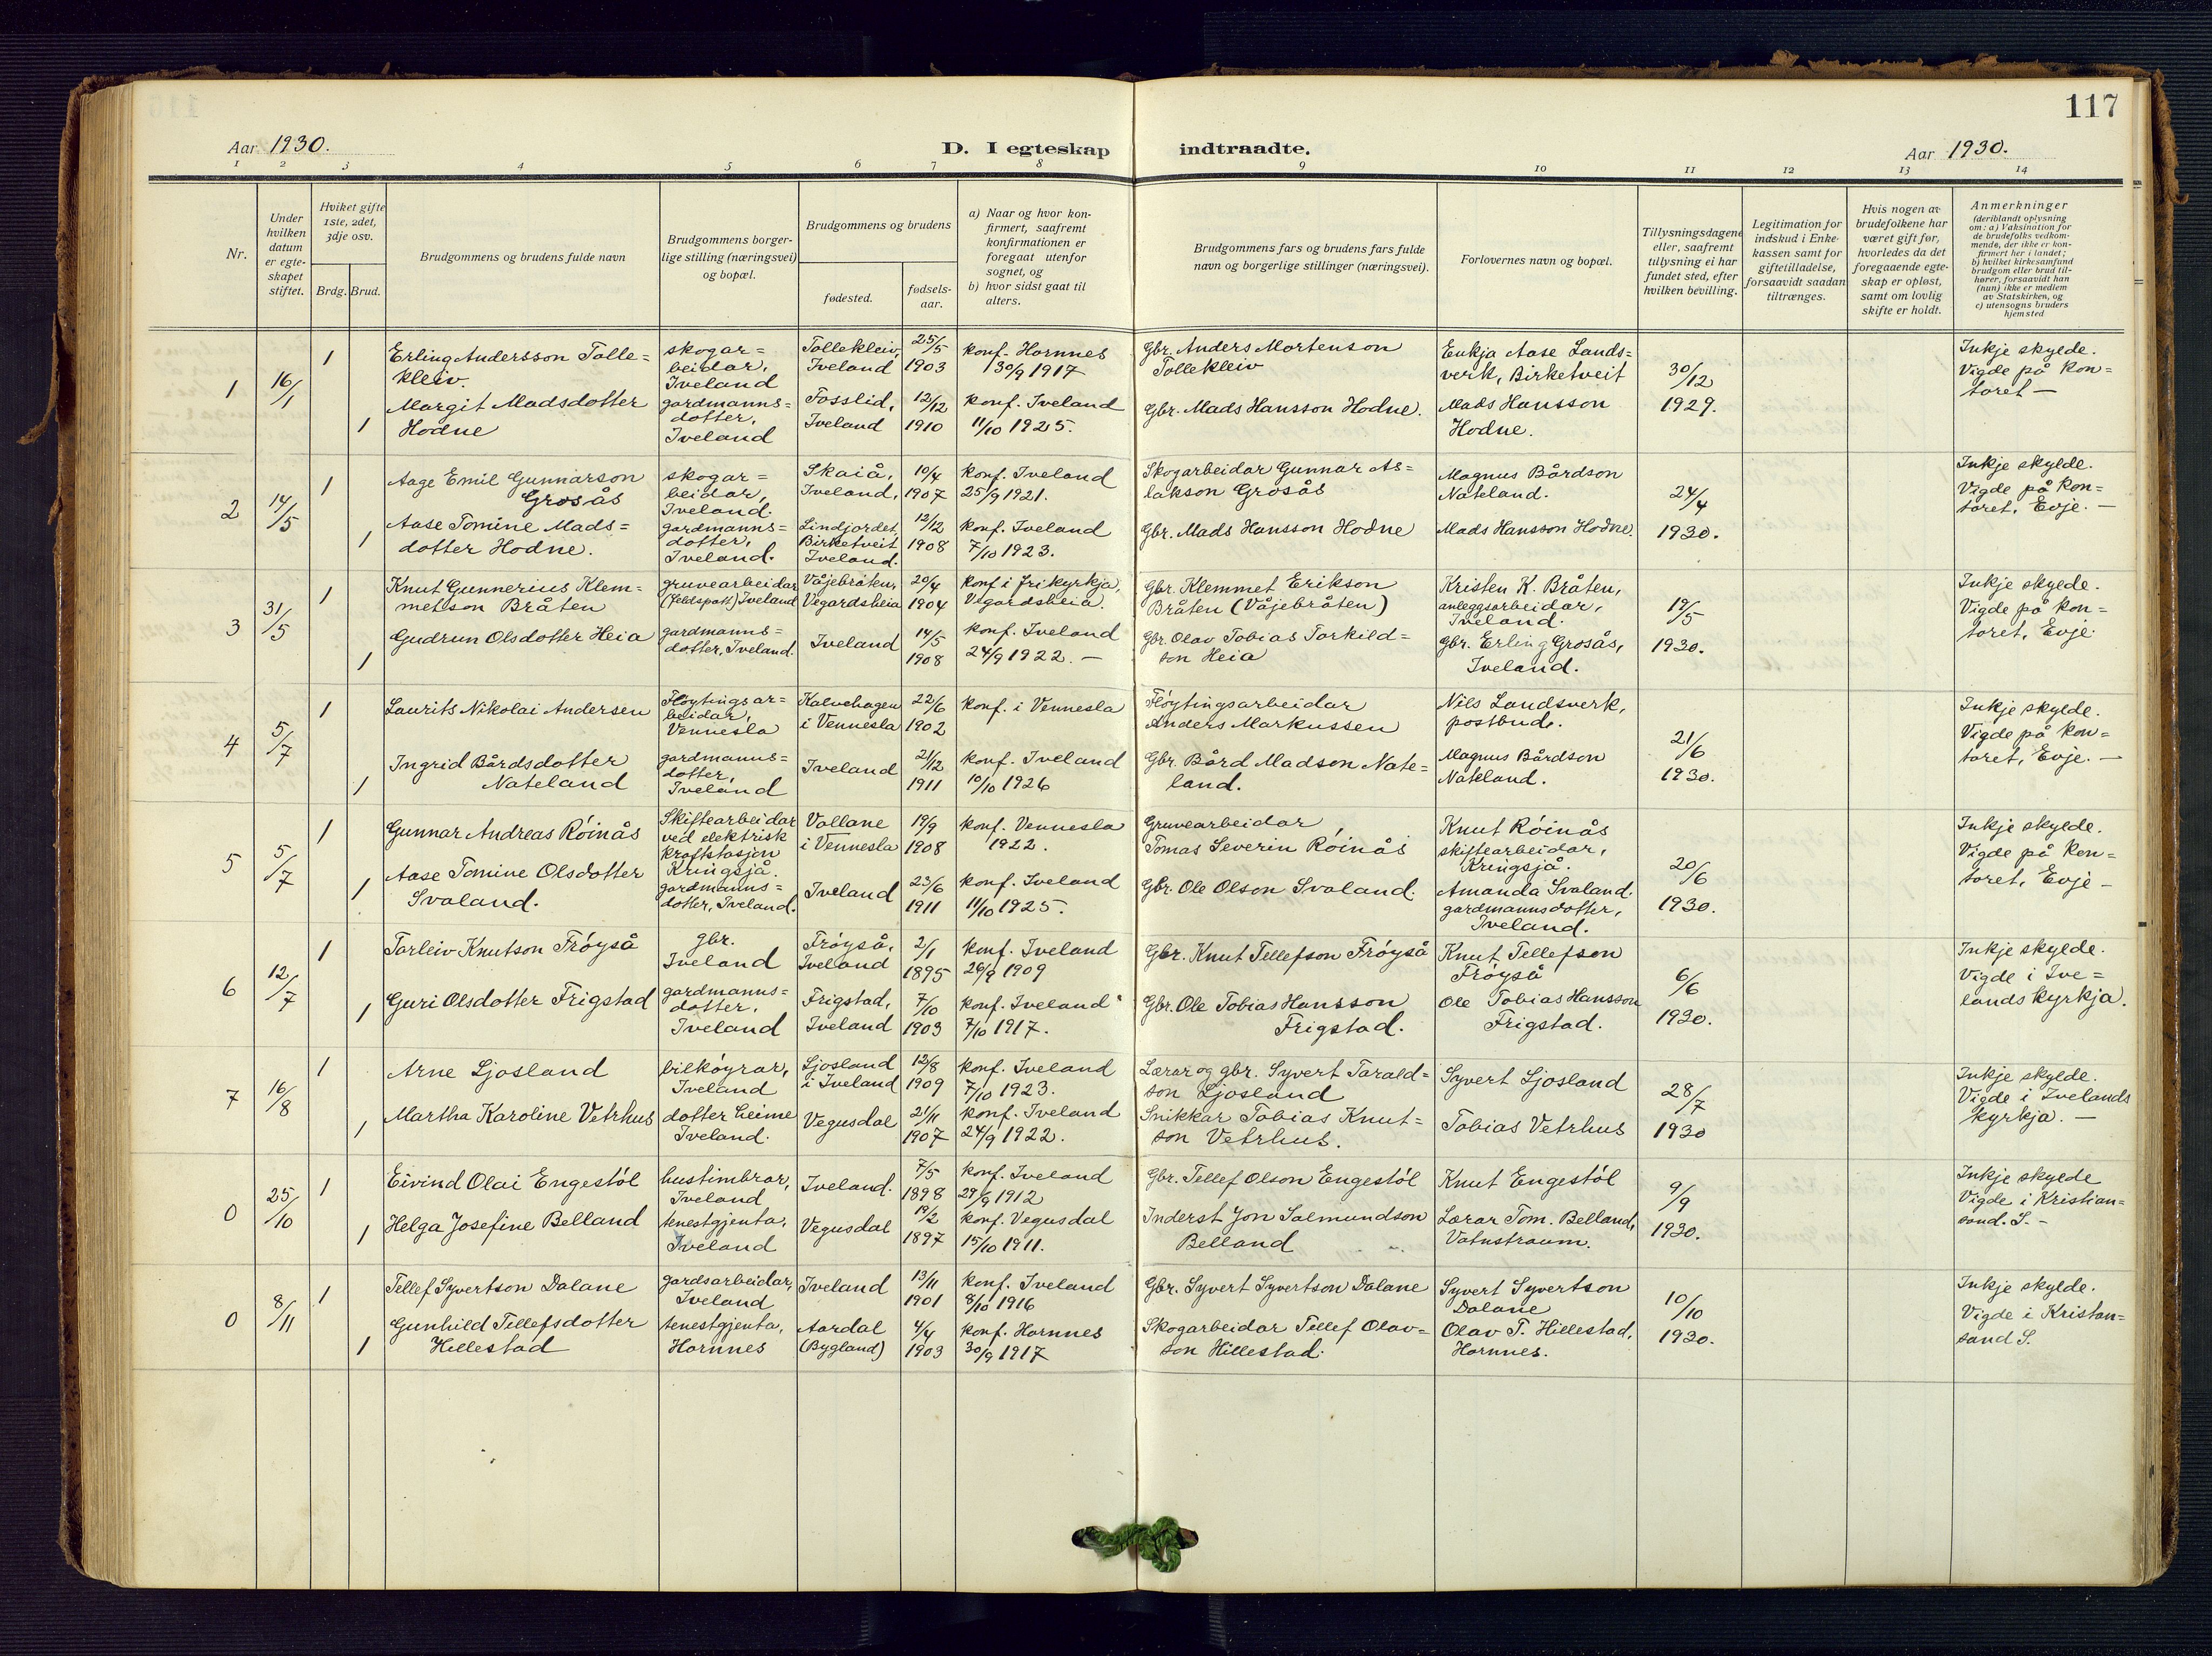 117
Aar 1930.
D. I egteskap indtraadte.
Aar 1930.
1 2 3 4 5 6 7 8 9 10 11 12 13 14
Nr.
Under hvilken datum er egteskapet stiftet.
Hviket gifte 1ste, 2det, 3dje osv.
Brdg. Brud.
Brudgommens og brudens fulde navn
Brudgommens borgerlige stilling (næringsvei) og bopæl.
Brudgommens og brudens
fødested.
fødselsaar.
a) Naar og hvor konfirmert, saafremt konfirmationen er foregaat utenfor sognet, og
b) hvor sidst gaat til alters.
Brudgommens fars og brudens fars fulde navn og borgerlige stillinger (næringsvei).
Forlovernes navn og bopæl.
Tillysningsdagene eller, saafremt tillysning ei har fundet sted, efter hvilken bevilling.
Legitimation for indskud i Enkekassen samt for giftetilladelse, forsaavidt saadan tiltrænges.
Hvis nogen av brudefolkene har været gift før, hvorledes da det foregaaende egteskap er opløst, samt om lovlig skifte er holdt.
Anmerkninger
(deriblandt oplysning om: a) Vaksination for de brudefolks vedkommende, der ikke er konfirmert her i landet; b) hvilket kirkesamfund brudgom eller brud tilhører, forsaavidt han (hun) ikke er medlem av Statskirken, og c) utensogns bruders hjemsted
1 16/1
1 Erling Andersson Tollekleiv. skogarbeidar, Iveland Tollekleiv, Iveland 25/5 1903 konf. Hornnes 30/9 1917 Gbr. Anders Mortenson Tollekleiv Enkja Aase Landsverk, Birketveit 30/12 1929. Inkje skylde. Vigde på kontoret —
1 Margit Madsdotter Hodne gardmannsdotter, Iveland Fosslid, Iveland 12/12 1910 konf. Iveland 11/10 1925. Gbr. Mads Hansson Hodne. Mads Hansson Hodne.
2 14/5
1 Aage Emil Gunnarson Grosås skogarbeidar, Iveland. Skaiå, Iveland, 10/4 1907 konf. Iveland 25/9 1921. Skogarbeidar Gunnar Aslakson Grosås Magnus Bårdson Nateland. 24/4 1930. Inkje skylde. Vigde på kontoret, Evje. —
1 Aase Tomine Madsdotter Hodne. gardmannsdotter, Iveland. Lindjordet, Birketveit Iveland. 12/12 1908 konf. Iveland 7/10 1923. Gbr. Mads Hansson Hodne Mads Hansson Hodne.
3 31/5
1 Knut Gunnerius Klemmetson Bråten gruvearbeidar (feldspatt) Iveland Våjebråten, Vegardsheia 20/4 1904 konf i Frikyrkja, Vegardsheia. Gbr. Klemmet Erikson Bråten (Våjebråten) Kristen K. Bråten, anleggsarbeidar, Iveland. 19/5 1930. Inkje skylde. Vigde på kontoret, Evje.
1 Gudrun Olsdotter Heia gardmannsdotter, Iveland. Iveland 14/5 1908 konf. Iveland 24/9 1922. — Gbr. Olav Tobias Torkildson Heia Gbr. Erling Grosås, Iveland.
4 5/7
1 Laurits Nikolai Andersen Fløytingsarbeidar, Vennesla Kalvehagen i Vennesla 22/6 1902 konf. i Vennesla Fløytingsarbeidar Anders Markussen Nils Landsverk, postbud. 21/6 1930. Inkje skylde. Vigde på kontoret, Evje. —
1 Ingrid Bårdsdotter Nateland gardmannsdotter, Iveland Iveland 21/12 1911 konf. Iveland 10/10 1926 Gbr. Bård Madson Nateland. Magnus Bårdson Nateland.
5 5/7
1 Gunnar Andreas Røinås Skiftearbeidar ved elektrisk kraftstasjon Kringsjå. Vollane i Vennesla 19/9 1908 konf. Vennesla 1922. Gruvearbeidar Tomas Severin Røinås Knut Røinås skiftearbeidar, Kringsjå. 20/6 1930. Inkje skylde. Vigde på kontoret, Evje —
1 Aase Tomine Olsdotter Svaland. gardmannsdotter, Iveland. Iveland 23/6 1911 konf. Iveland 11/10 1925. Gbr. Ole Olson Svaland. Amanda Svaland. gardmannsdotter, Iveland.
6 12/7
1 Torleiv Knutson Frøyså gbr. Iveland Frøyså, Iveland 2/1 1895 konf. Iveland 26/9 1909 Gbr. Knut Tellefson Frøyså Knut Tellefson Frøyså 6/6 1930. Inkje skylde. Vigde i Ivelands kyrkja.
1 Guri Olsdotter Frigstad gardmannsdotter, Iveland Frigstad, Iveland 7/10 1903 konf. Iveland 7/10 1917. Gbr. Ole Tobias Hansson Frigstad. Ole Tobias Hansson Frigstad.
7 16/8
1 Arne Ljosland bilkøyrar, Iveland Ljosland i Iveland 12/8 1909 konf. Iveland 7/10 1923. Lærar og gbr. Syvert Taraldson Ljosland Syvert Ljosland 28/7 1930 Inkje skylde. Vigde i Ivelands kyrkja. —
1 Martha Karoline Vetrhus dotter heime Iveland. Vegusdal 21/11 1907 konf. Iveland 24/9 1922. Snikkar Tobias Knutson Vetrhus. Tobias Vetrhus
0 25/10
1 Eivind Olai Engestøl hustimbrar, Iveland Iveland. 7/5 1898 konf. Iveland 29/9 1912 Gbr. Tellef Olson Engestøl Knut Engestøl 9/9 1930. Inkje skylde Vigde i Kristiansand. S. —
1 Helga Josefine Belland tenestgjenta, Iveland Vegusdal 19/2 1897 konf. Vegusdal 15/10 1911. Inderst Jon Salmundson Belland Lærar Tom. Belland, Vatnstraum.
0 8/11
1 Tellef Syvertson Dalane gardsarbeidar, Iveland Iveland 13/11 1901 konf. Iveland 8/10 1916 Gbr. Syvert Syvertson Dalane Syvert Syvertson Dalane 10/10 1930. Inkje skylde. Vigde i Kristansand S.
1 Gunhild Tellefsdotter Hillestad tenestgjenta, Hornnes Aardal (Bygland) 4/4 1903 konf. Hornnes 30/9 1917 Skogarbeidar Tellef Olavson Hillestad. Olav T. Hillestad, Hornnes.